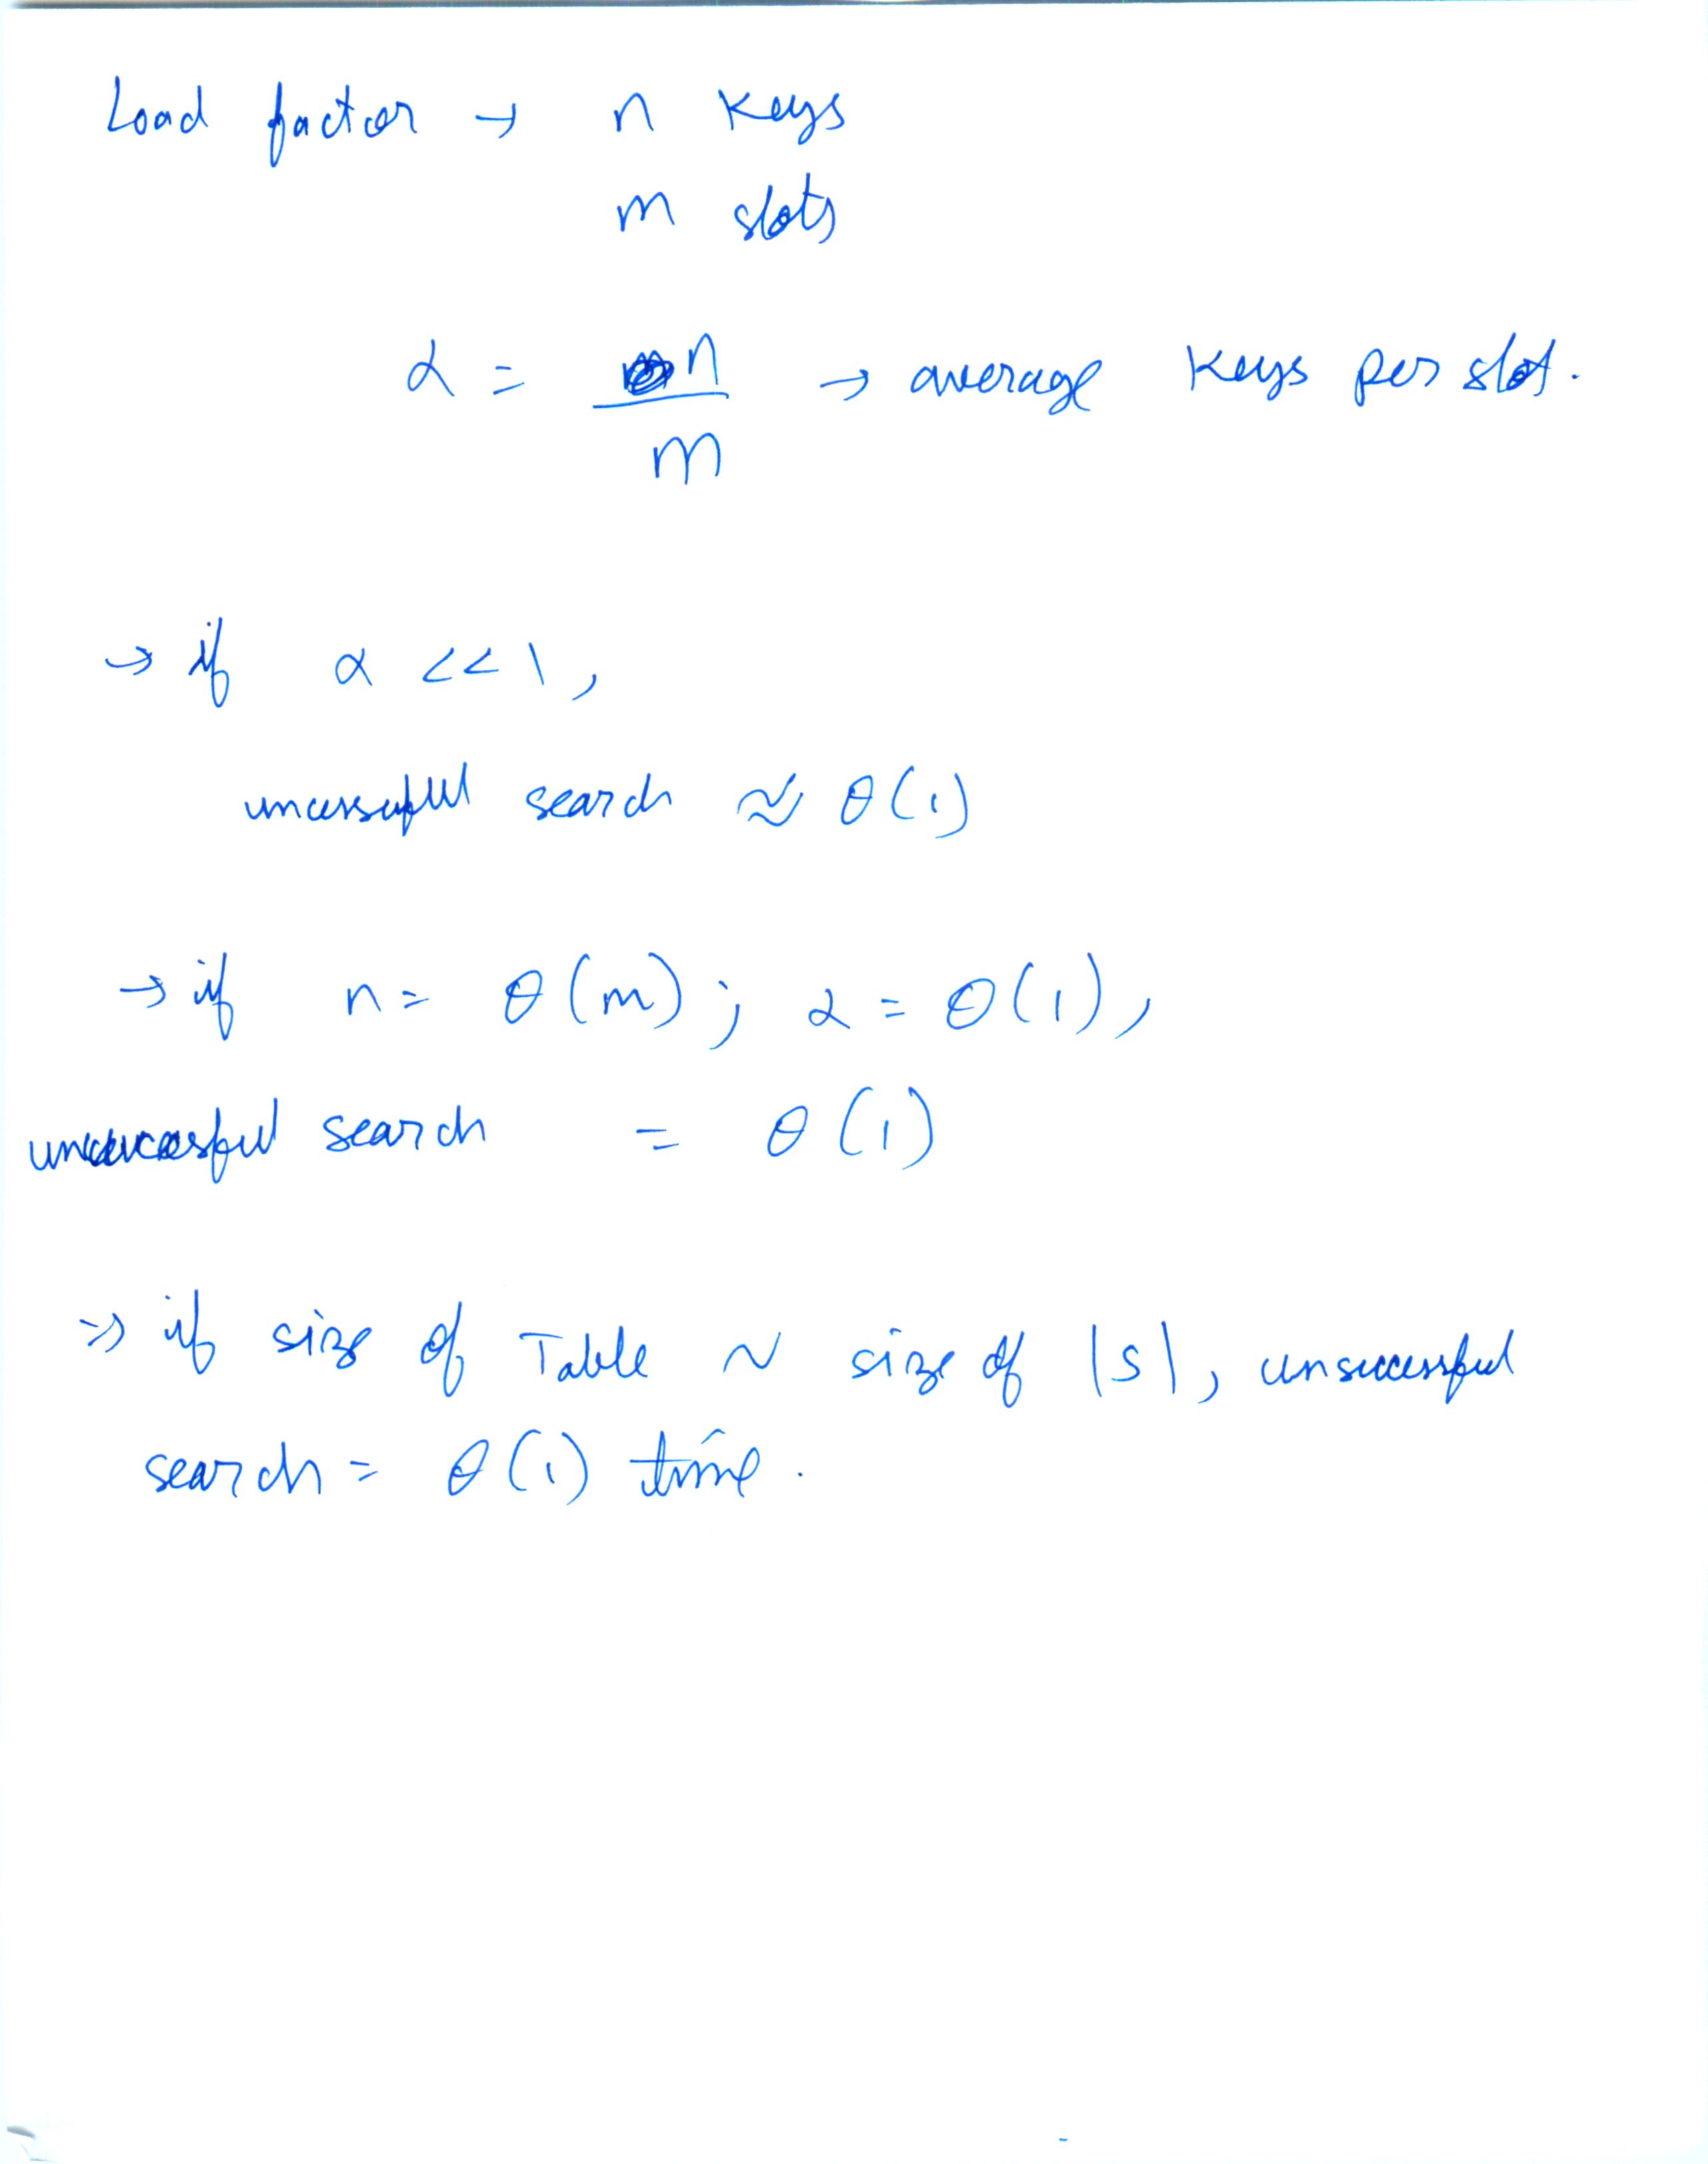 Load factor → n keys
m slots
α = n/m → average keys per slot.
→ if α << 1,
unsucessful search ≈ θ(1)
→ if n = θ(m); α = θ(1),
unsuccessful search = θ(1)
⇒ if size of Table ~ size of |S|, unsuccessful
search = θ(1) time.